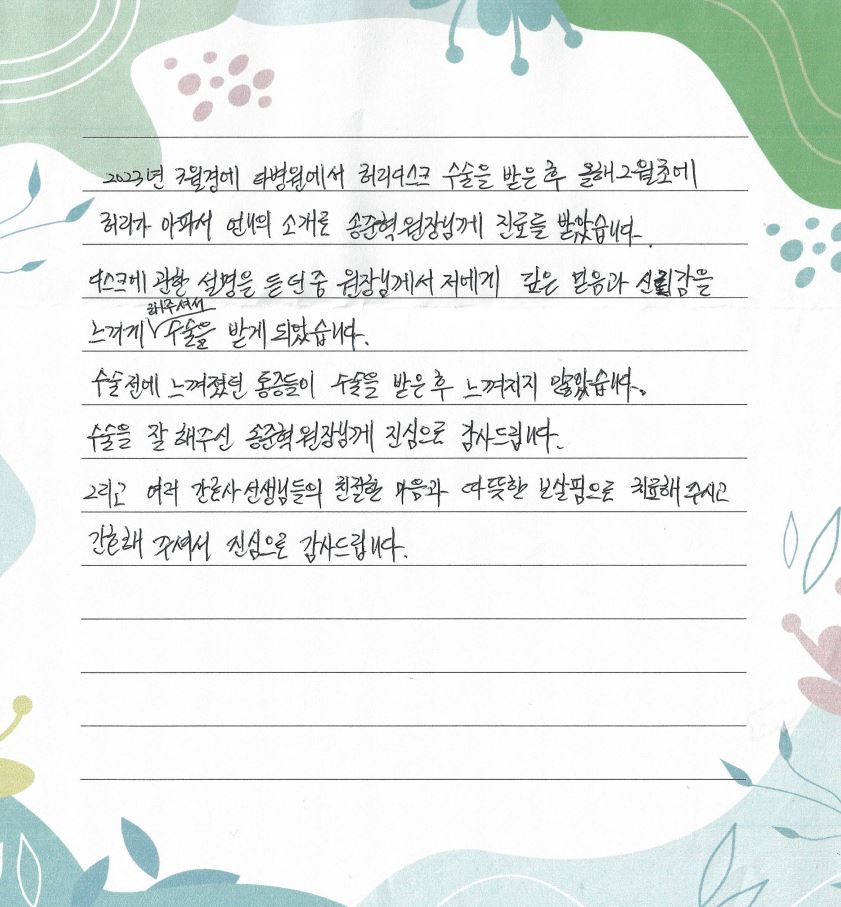 2023년 3월경에 타병원에서 허리디스크 수술을 받은 후 올해 2월초에
허리가 아파서 언니의 소개로 송준혁원장님께 진료를 받았습니다.
디스크에 관한 설명을 듣던 중 원장님께서 저에게 깊은 믿음과 신뢰감을
해주셔서
느끼게 수술을 받게 되었습니다.
수술전에 느껴졌던 통증들이 수술을 받은 후 느껴지지 않았습니다.
수술을 잘 해주신 송준혁원장님께 진심으로 감사드립니다.
그리고 여러 간호사선생님들의 친절한 마음과 따뜻한 보살핌으로 치료해 주시고
간호해 주셔서 진심으로 감사드립니다.